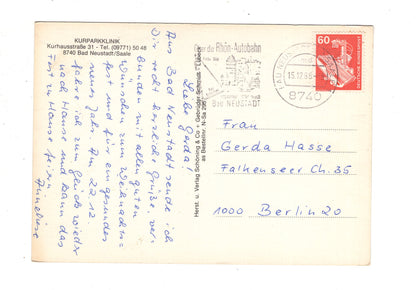 KURPARKKLINIK
Kurhausstraße 31 - Tel. (09771) 50 48
8740 Bad Neustadt/Saale
Liebe Gerda!
Aus Bad Neustadt sende ich
Dir recht herzliche Grüße, ver-
bunden mit allen guten
Wünschen zum Weihnachts-
fest und für ein gesundes
neues Jahr. Am 22.12.
fahre ich zum Glück wieder
nach Hause und kann das
Fest zu Hause feiern
Anneliese
Herst. u. Verlag Schöning & Co + Gebrüder Schmidt, Lübeck
Best.-Nr. N-Sa 295
über die Rhön-Autobahn
BAD NEUSTADT
15.12.86
8740
60
Frau
Gerda Hasse
Falkenseer Ch. 35
1000 Berlin 20